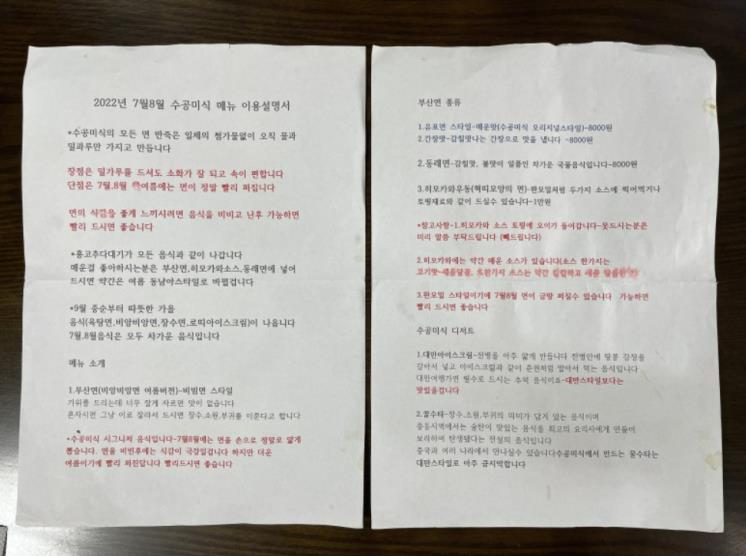 2022년 7월8월 수공미식 메뉴 이용설명서
*수공미식의 모든 면 반죽은 일체의 첨가물없이 오직 물과
밀과루만 가지고 만듭니다
장점은 밀가루를 드셔도 소화가 잘 되고 속이 편합니다
단점은 7월,8월 여름에는 면이 정말 빨리 퍼집니다
면의 식감을 좋게 느끼시려면 음식을 비비고 난후 가능하면
빨리 드시면 좋습니다
*홍고추다대기가 모든 음식과 같이 나갑니다
매운걸 좋아하시는분은 부산면,히모카와소스,동래면에 넣어
드시면 약간은 여름 동남아스타일로 바뀝겁니다
*9월 중순부터 따뜻한 가을
음식(육탕면,비앙비앙면,장수면,로띠아이스크림)이 나옵니다
7월,8월음식은 모두 차가운 음식입니다
메뉴 소개
1.부산면(비앙비앙면 여름버전)-비빔면 스타일
가위를 드리는데 너무 잘게 자르면 맛이 없습니다
혼자시면 그냥 이로 잘라서 드시면 장수,소원,부귀를 이룬다고 합니다
*수공미식 시그니처 음식입니다-7월8월에는 면을 손으로 정말로 얇게
뽑습니다. 면을 비빈후에는 식감이 극강일겁니다 하지만 더운
여름이기에 빨리 퍼진답니다 빨리드시면 좋습니다
부산면 종류
1.유포면 스타일-매운맛(수공미식 오리지널스타일)-8000원
2.간장맛-감칠맛나는 간장으로 맛을 냅니다 -8000원
2.동래면-감칠맛, 불맛이 일품인 차가운 국물음식입니다-8000원
3.히모카와우동(혁띠모양의 면)-판모밀처럼 두가지 소스에 찍어먹거나
토핑재료와 같이 드실수 있습니다-1만원
*참고사항-1.히모카와 소스 토핑에 오이가 들어갑니다-못드시는분은
미리 말씀 부탁드립니다 (빼드립니다)
2.히모카와에는 약간 매운 소스가 있습니다(소스 한가지는
고기맛-새콤달콤, 또한가지 소스는 약간
3.판모밀 스타일이기에 7월8월 면이 금방 퍼질수 있습니다 가능하면
빨리 드시면 좋습니다
수공미식 디저트
1.대만아이스크림-전병을 아주 얇게 만듭니다 전병안에 땅콩 강정을
갈아서 넣고 아이스크림과 같이 춘권처럼 말아서 먹는 음식입니다
대만여행가면 필수로 드시는 추억 음식이죠-대만스타일보다는
맛있을겁니다
2.꿀수타-장수,소원,부귀의 의미가 담겨 있는 음식이며
중동시역에서는 술탄이 맛있는 음식을 최고의 요리사에게 만들어
보라하여 탄생됐다는 전설의 음식입니다
중국과 여러 나라에서 만나실수 있습니다수공미식에서 만드는 꿀수타는
대만스타일로 아주 급지막합니다